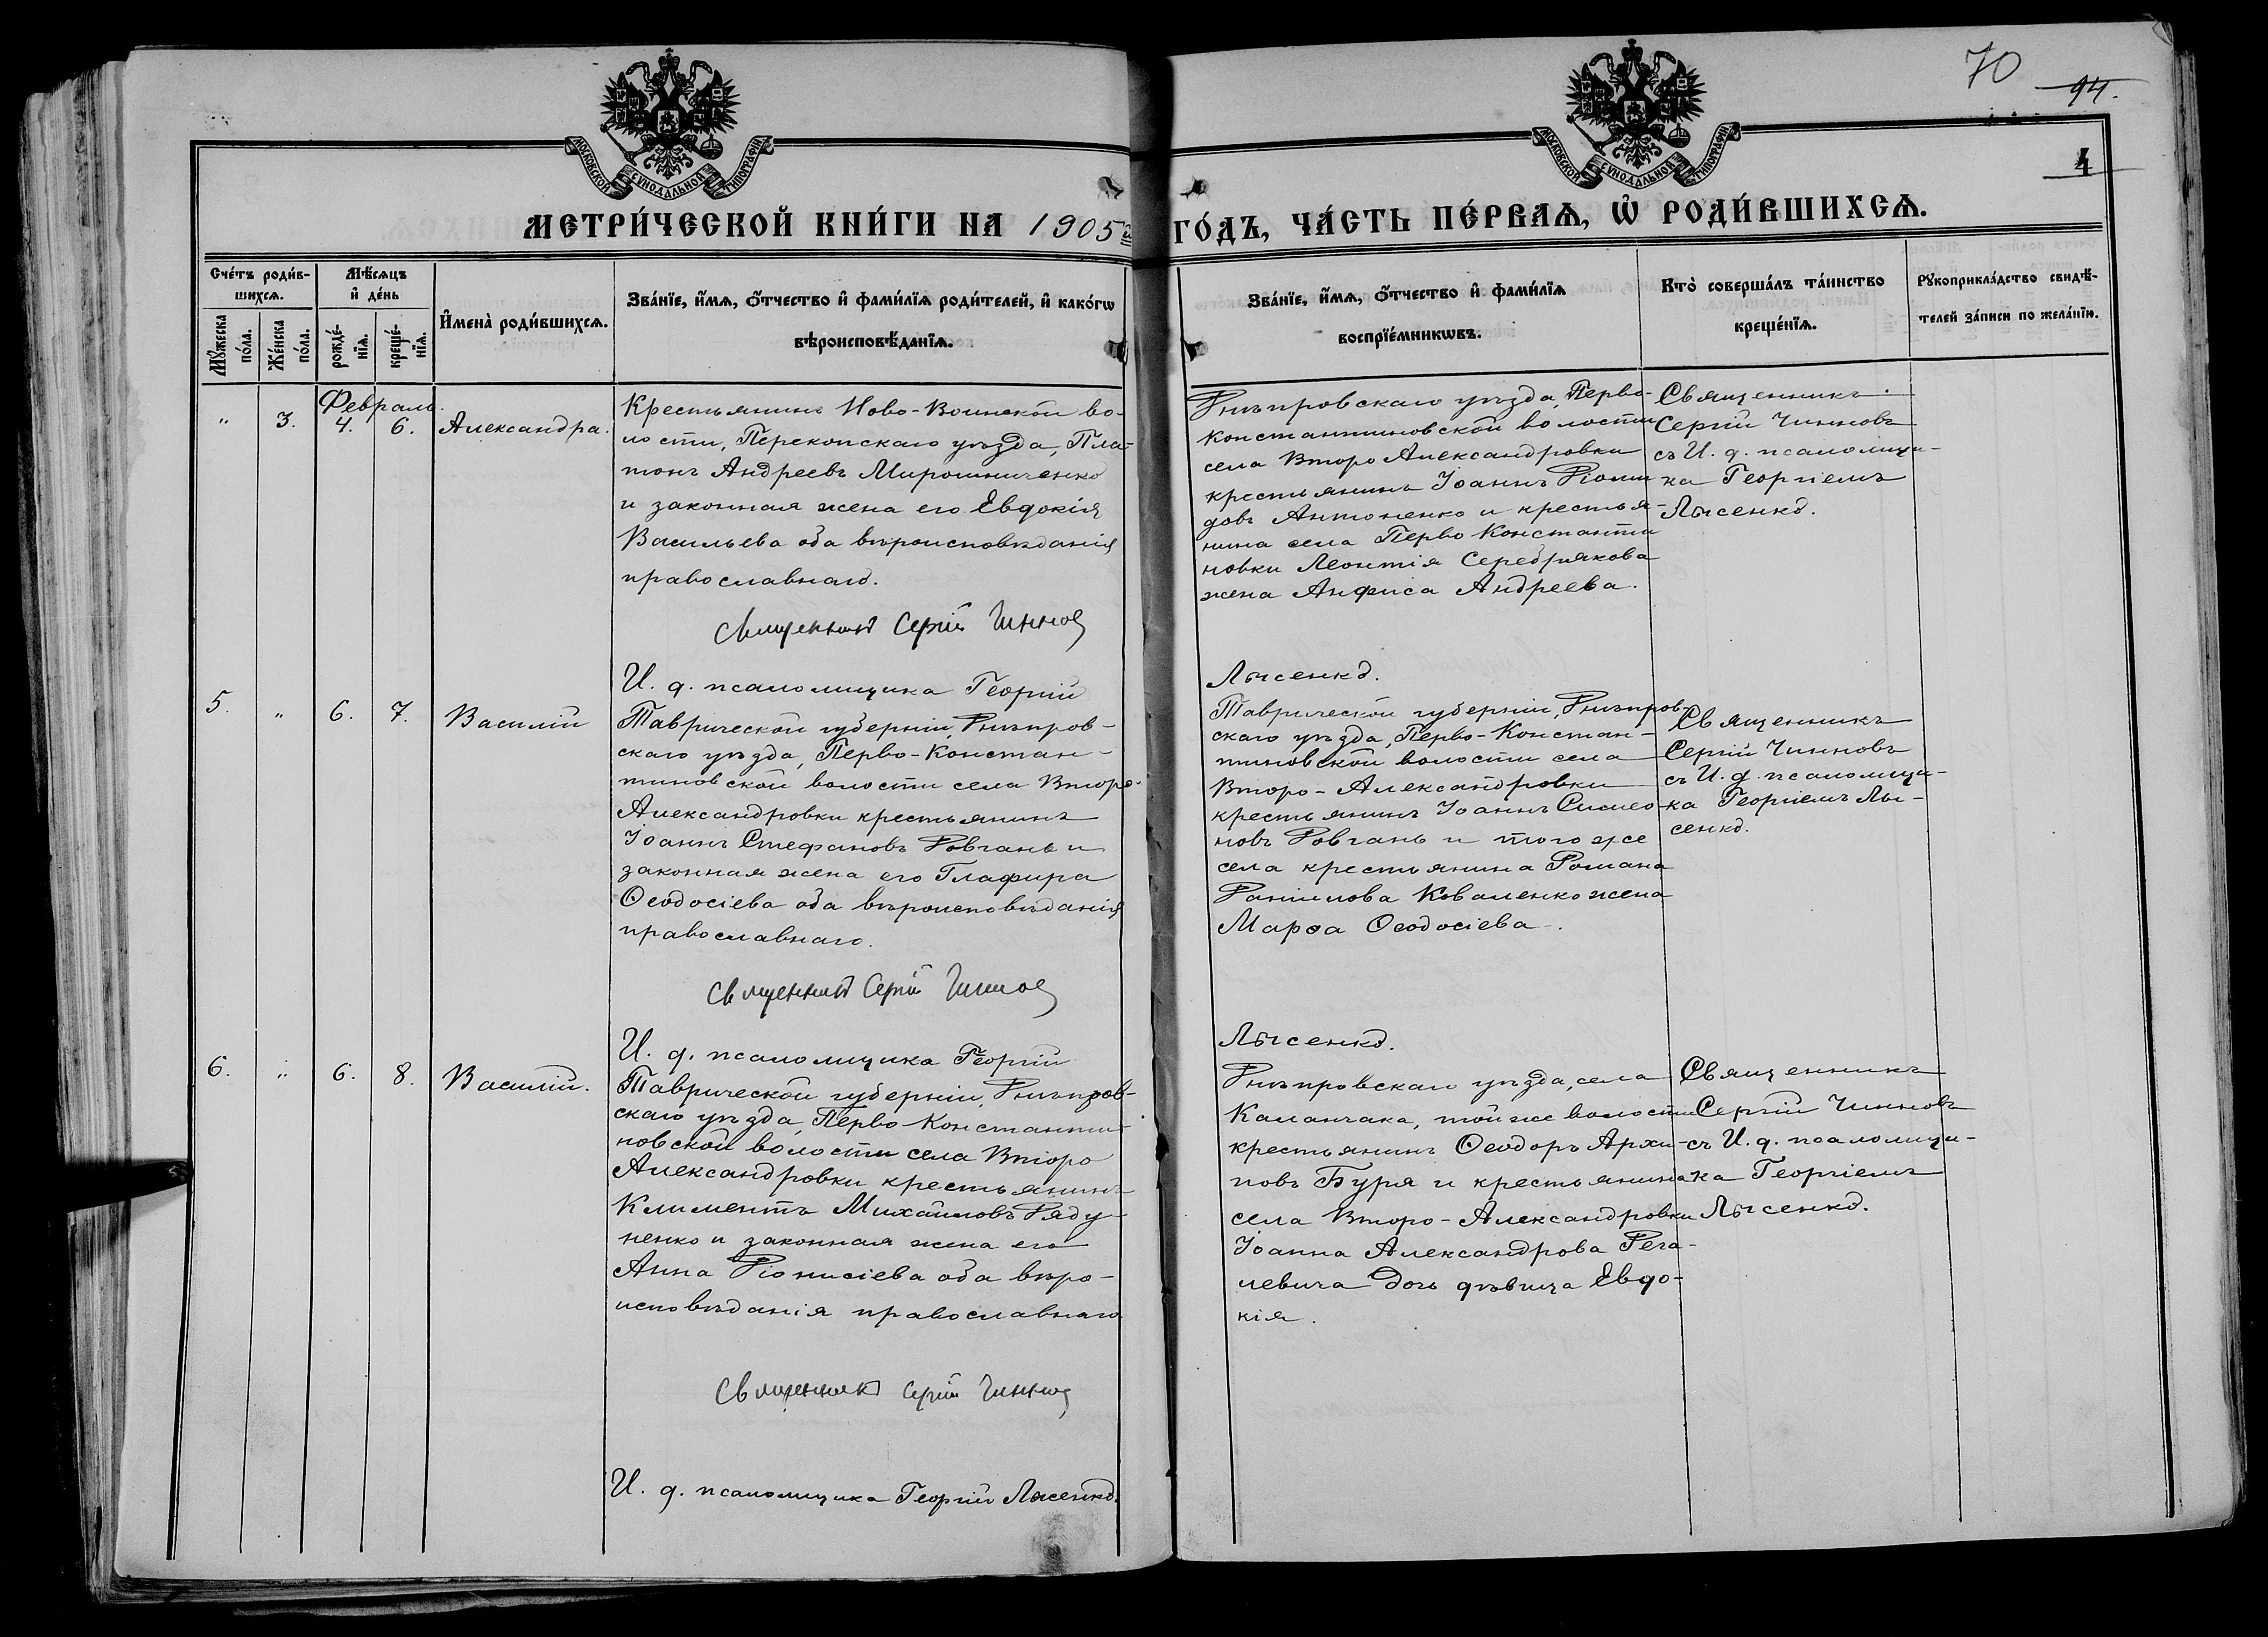 70
94.
4
МОСКОВСКОЙ СѴНОДАЛЬНОЙ ТИПОГРАФІИ
МОСКОВСКОЙ СѴНОДАЛЬНОЙ ТИПОГРАФІИ
МЕТРИ́ЧЕСКОЙ КНИ́ГИ НА 1905й ГО́ДЪ, ЧА́СТЬ ПЕ́РВАѦ, Ѡ҆ РОДИ́ВШИХСѦ.
Сче́тъ роди́в-
шихсѧ.
Мꙋ́жеска
по́ла.
Же́нска
по́ла.
Мѣ́сѧцъ
и҆ де́нь
рожде́-
нїѧ.
креще́-
нїѧ.
И҆мена̀ роди́вшихсѧ.
Зва́нїе, и҆́мѧ, ѻ҆́тчество и҆ фами́лїѧ роди́телей, и҆ како́гѡ
вѣроисповѣ́данїѧ.
Зва́нїе, и҆́мѧ, ѻ҆́тчество и҆ фами́лїѧ
воспрїе́мникѡвъ.
Кто̀ соверша́лъ та́инство
креще́нїѧ.
Рꙋкоприкла́дство свидѣ́-
телей за́писи по жела́нїю.
Февраль.
" 3. 4. 6. Александра.
Крестьянинъ Ново-Воинской во-
лости, Перекопскаго уѣзда, Пла-
тонъ Андреевъ Мирошниченко
и законная жена его Евдокія
Васильева оба вѣроисповѣданія
православнаго.
Священникъ Сергій Чинновъ
И. д. псаломщика Георгій
Днѣпровскаго уѣзда, Перво-
Константиновской волости
села Второ Александровки
крестьянинъ Іоаннъ
довъ Антоненко и крестья-
нина села Перво Константи
новки Леонтія Серебрякова
жена Анфиса Андреева.
Лысенко.
Священникъ
Сергій Чинновъ
съ И. д. псаломщи-
ка Георгіемъ
Лысенко.
5. " 6. 7. Василій
Таврической губерніи, Днѣпров-
скаго уѣзда, Перво-Констан-
тиновской волости села Второ-
Александровки крестьянинъ
Іоаннъ Стефановъ Довгань и
законная жена его Глафира
Ѳеодосіева оба вѣроисповѣданія
православнаго.
Священникъ Сергій Чинновъ
И. д. псаломщика Георгій
Таврической губерніи, Днѣпров-
скаго уѣзда, Перво-Констан-
тиновской волости села
Второ-Александровки
крестьянинъ Іоаннъ Симео-
новъ Довгань и того же
села крестьянина Романа
Даніилова Коваленко жена
Марѳа Ѳеодосіева.
Лысенко.
Священникъ
Сергій Чинновъ
съ И. д. псаломщи-
ка Георгіемъ Лы-
сенко.
6. " 6. 8. Василій.
Таврической губерніи, Днѣпров-
скаго уѣзда, Перво-Константи-
новской волости села Второ
Александровки крестьянинъ
Климентъ Михаиловъ Дяду-
ненко и законная жена его
Анна Діонисіева оба вѣро-
исповѣданія православнаго
Священникъ Сергій Чинновъ
И. д. псаломщика Георгій Лысенко.
Днѣпровскаго уѣзда, села
Каланчака, той же волости
крестьянинъ Ѳеодоръ Архи-
повъ Буря и крестьянина
села Второ-Александровки
Іоанна Александрова
левича дочь дѣвица Евдо-
кія.
Священникъ
Сергій Чинновъ
съ И. д. псаломщи-
ка Георгіемъ
Лысенко.